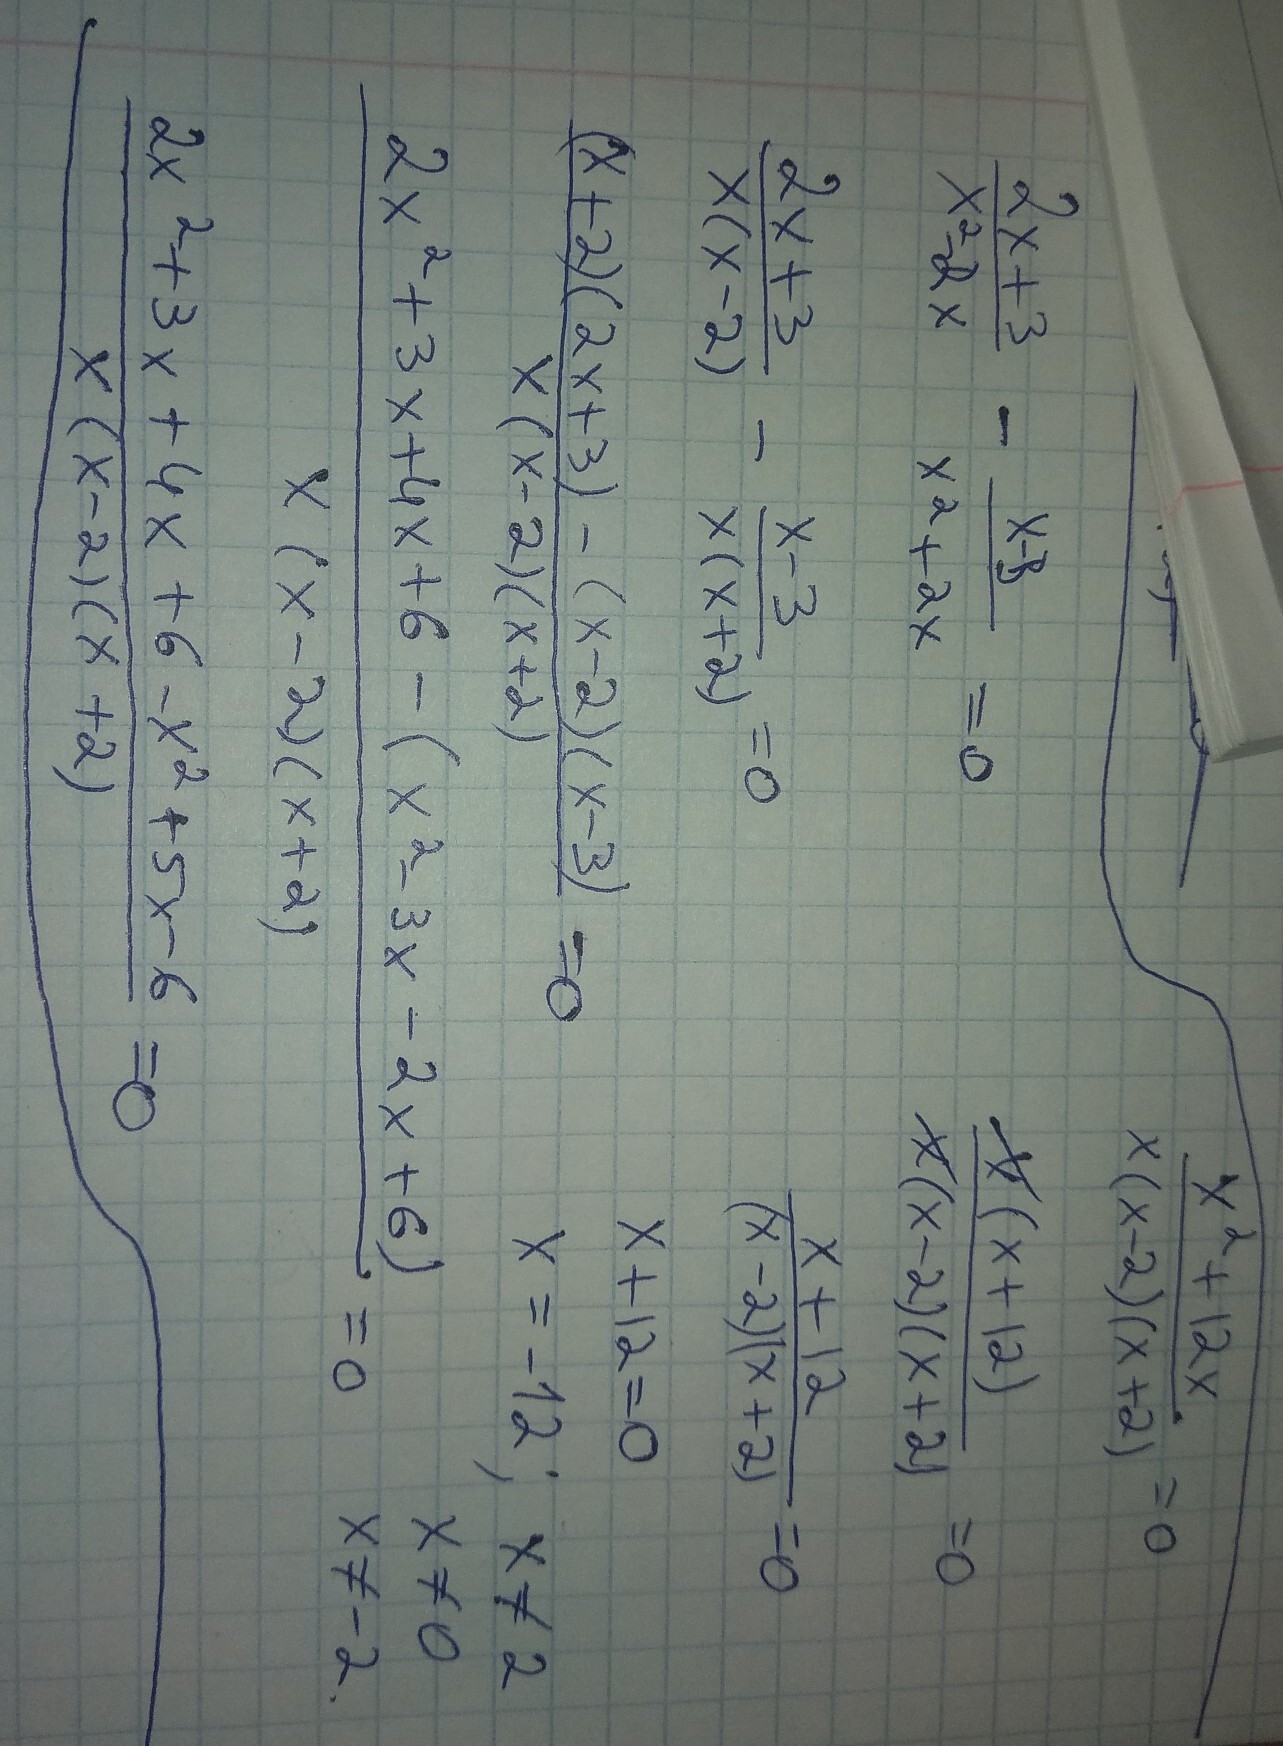 (2x+3)/(x²-2x) - (x-3)/(x²+2x) =0
(2x+3)/(x(x-2)) - (x-3)/(x(x+2)) =0
((x+2)(2x+3)-(x-2)(x-3))/(x(x-2)(x+2)) =0
(2x²+3x+4x+6-(x²-3x-2x+6))/(x(x-2)(x+2)) =0
(2x²+3x+4x+6-x²+5x-6)/(x(x-2)(x+2)) =0
(x²+12x)/(x(x-2)(x+2)) =0
(x(x+12))/(x(x-2)(x+2)) =0
(x+12)/((x-2)(x+2)) =0
x+12=0
x=-12; x≠2
x≠0
x≠-2.